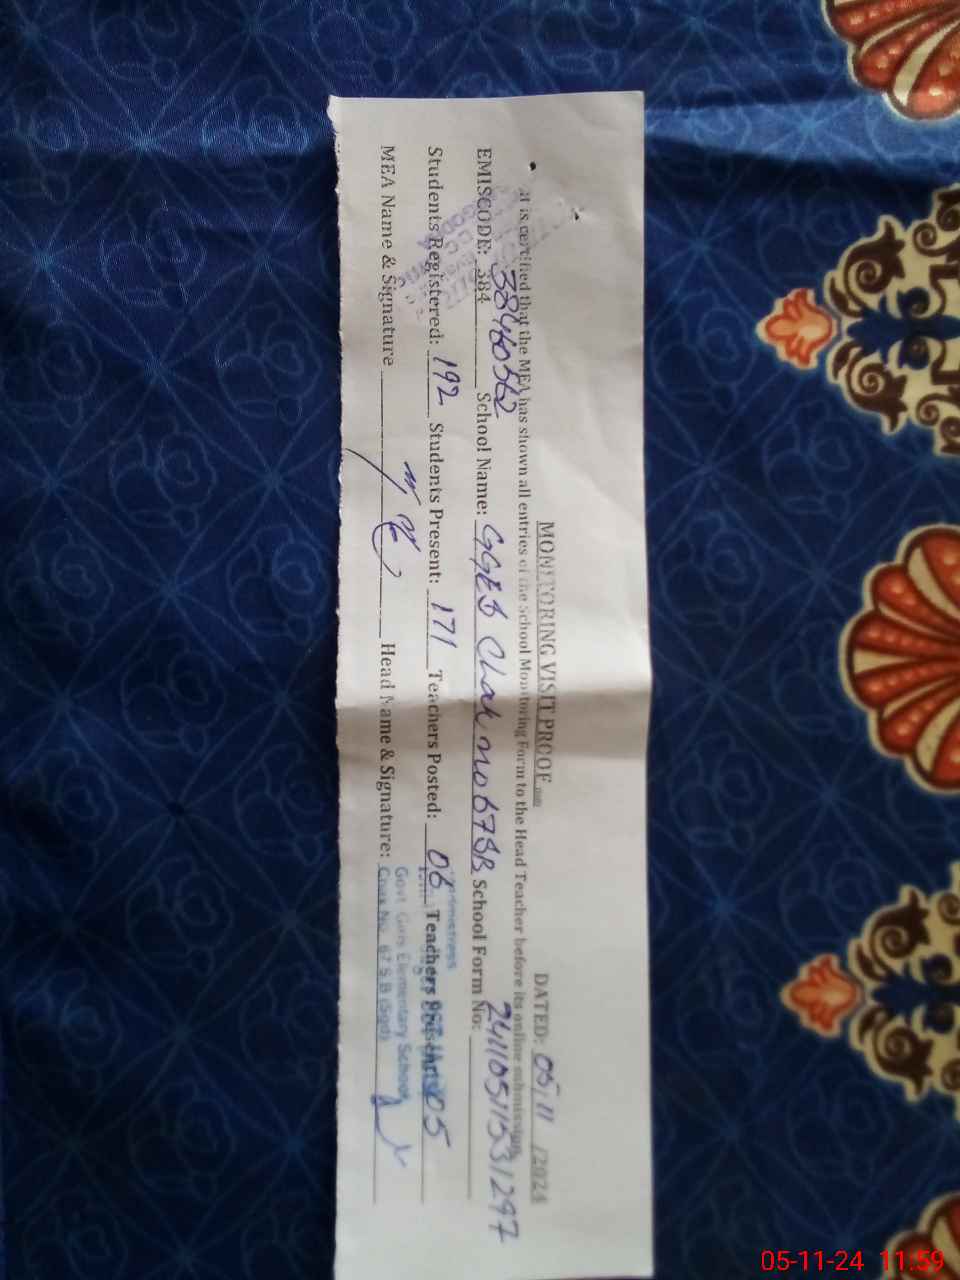 MONITORING VISIT PROOF
DATED: 05/11/2024
It is certified that the MEA has shown all entries of the School Monitoring Form to the Head Teacher before its online submission.
EMISCODE: 384 38460562 School Name: GGES Chak no 67SB School Form No: 24110511531297
Students Registered: 192 Students Present: 171 Teachers Posted: 06 Teachers Present: 05
MEA Name & Signature Head Name & Signature:
Headmistress
Govt Girls Elementary School
Chak No. 67 S.B (Sgd)
05-11-24 11:59